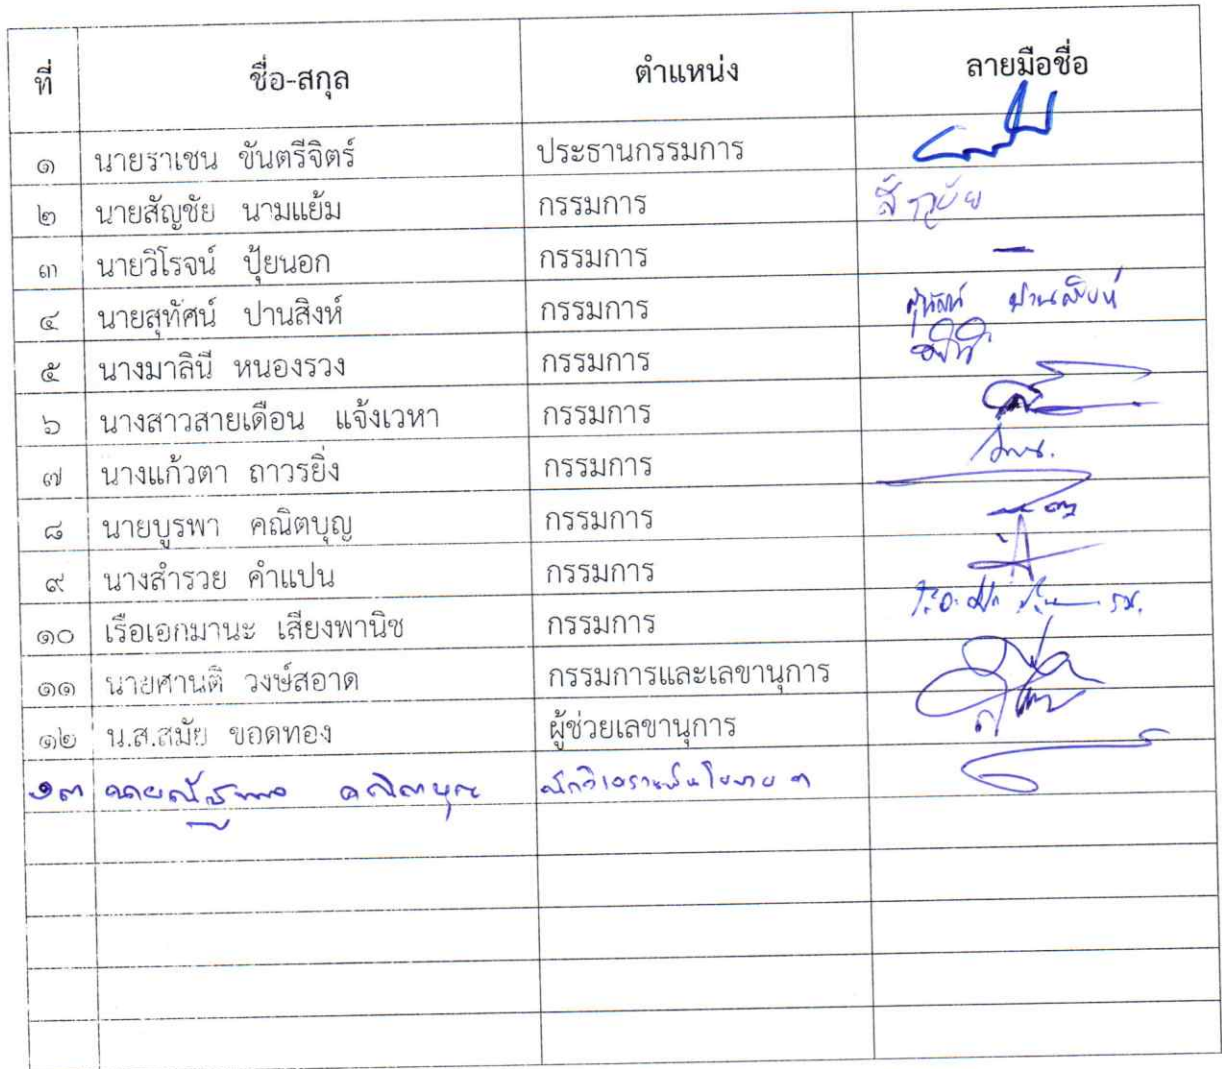 ที่ ชื่อ-สกุล ตำแหน่ง ลายมือชื่อ
๑ นายราเชน ขันตรีจิตร์ ประธานกรรมการ
๒ นายสัญชัย นามแย้ม กรรมการ สัญชัย
๓ นายวิโรจน์ ปุ้ยนอก กรรมการ –
๔ นายสุทัศน์ ปานสิงห์ กรรมการ สุทัศน์ ปานสิงห์
๕ นางมาลินี หนองรวง กรรมการ
๖ นางสาวสายเดือน แจ้งเวหา กรรมการ
๗ นางแก้วตา ถาวรยิ่ง กรรมการ
๘ นายบูรพา คณิตบุญ กรรมการ
๙ นางสำรวย คำแปน กรรมการ
๑๐ เรือเอกมานะ เสียงพานิช กรรมการ
๑๑ นายศานติ วงษ์สอาด กรรมการและเลขานุการ
๑๒ น.ส.สมัย ขอดทอง ผู้ช่วยเลขานุการ
๑๓ คณิตบุญ